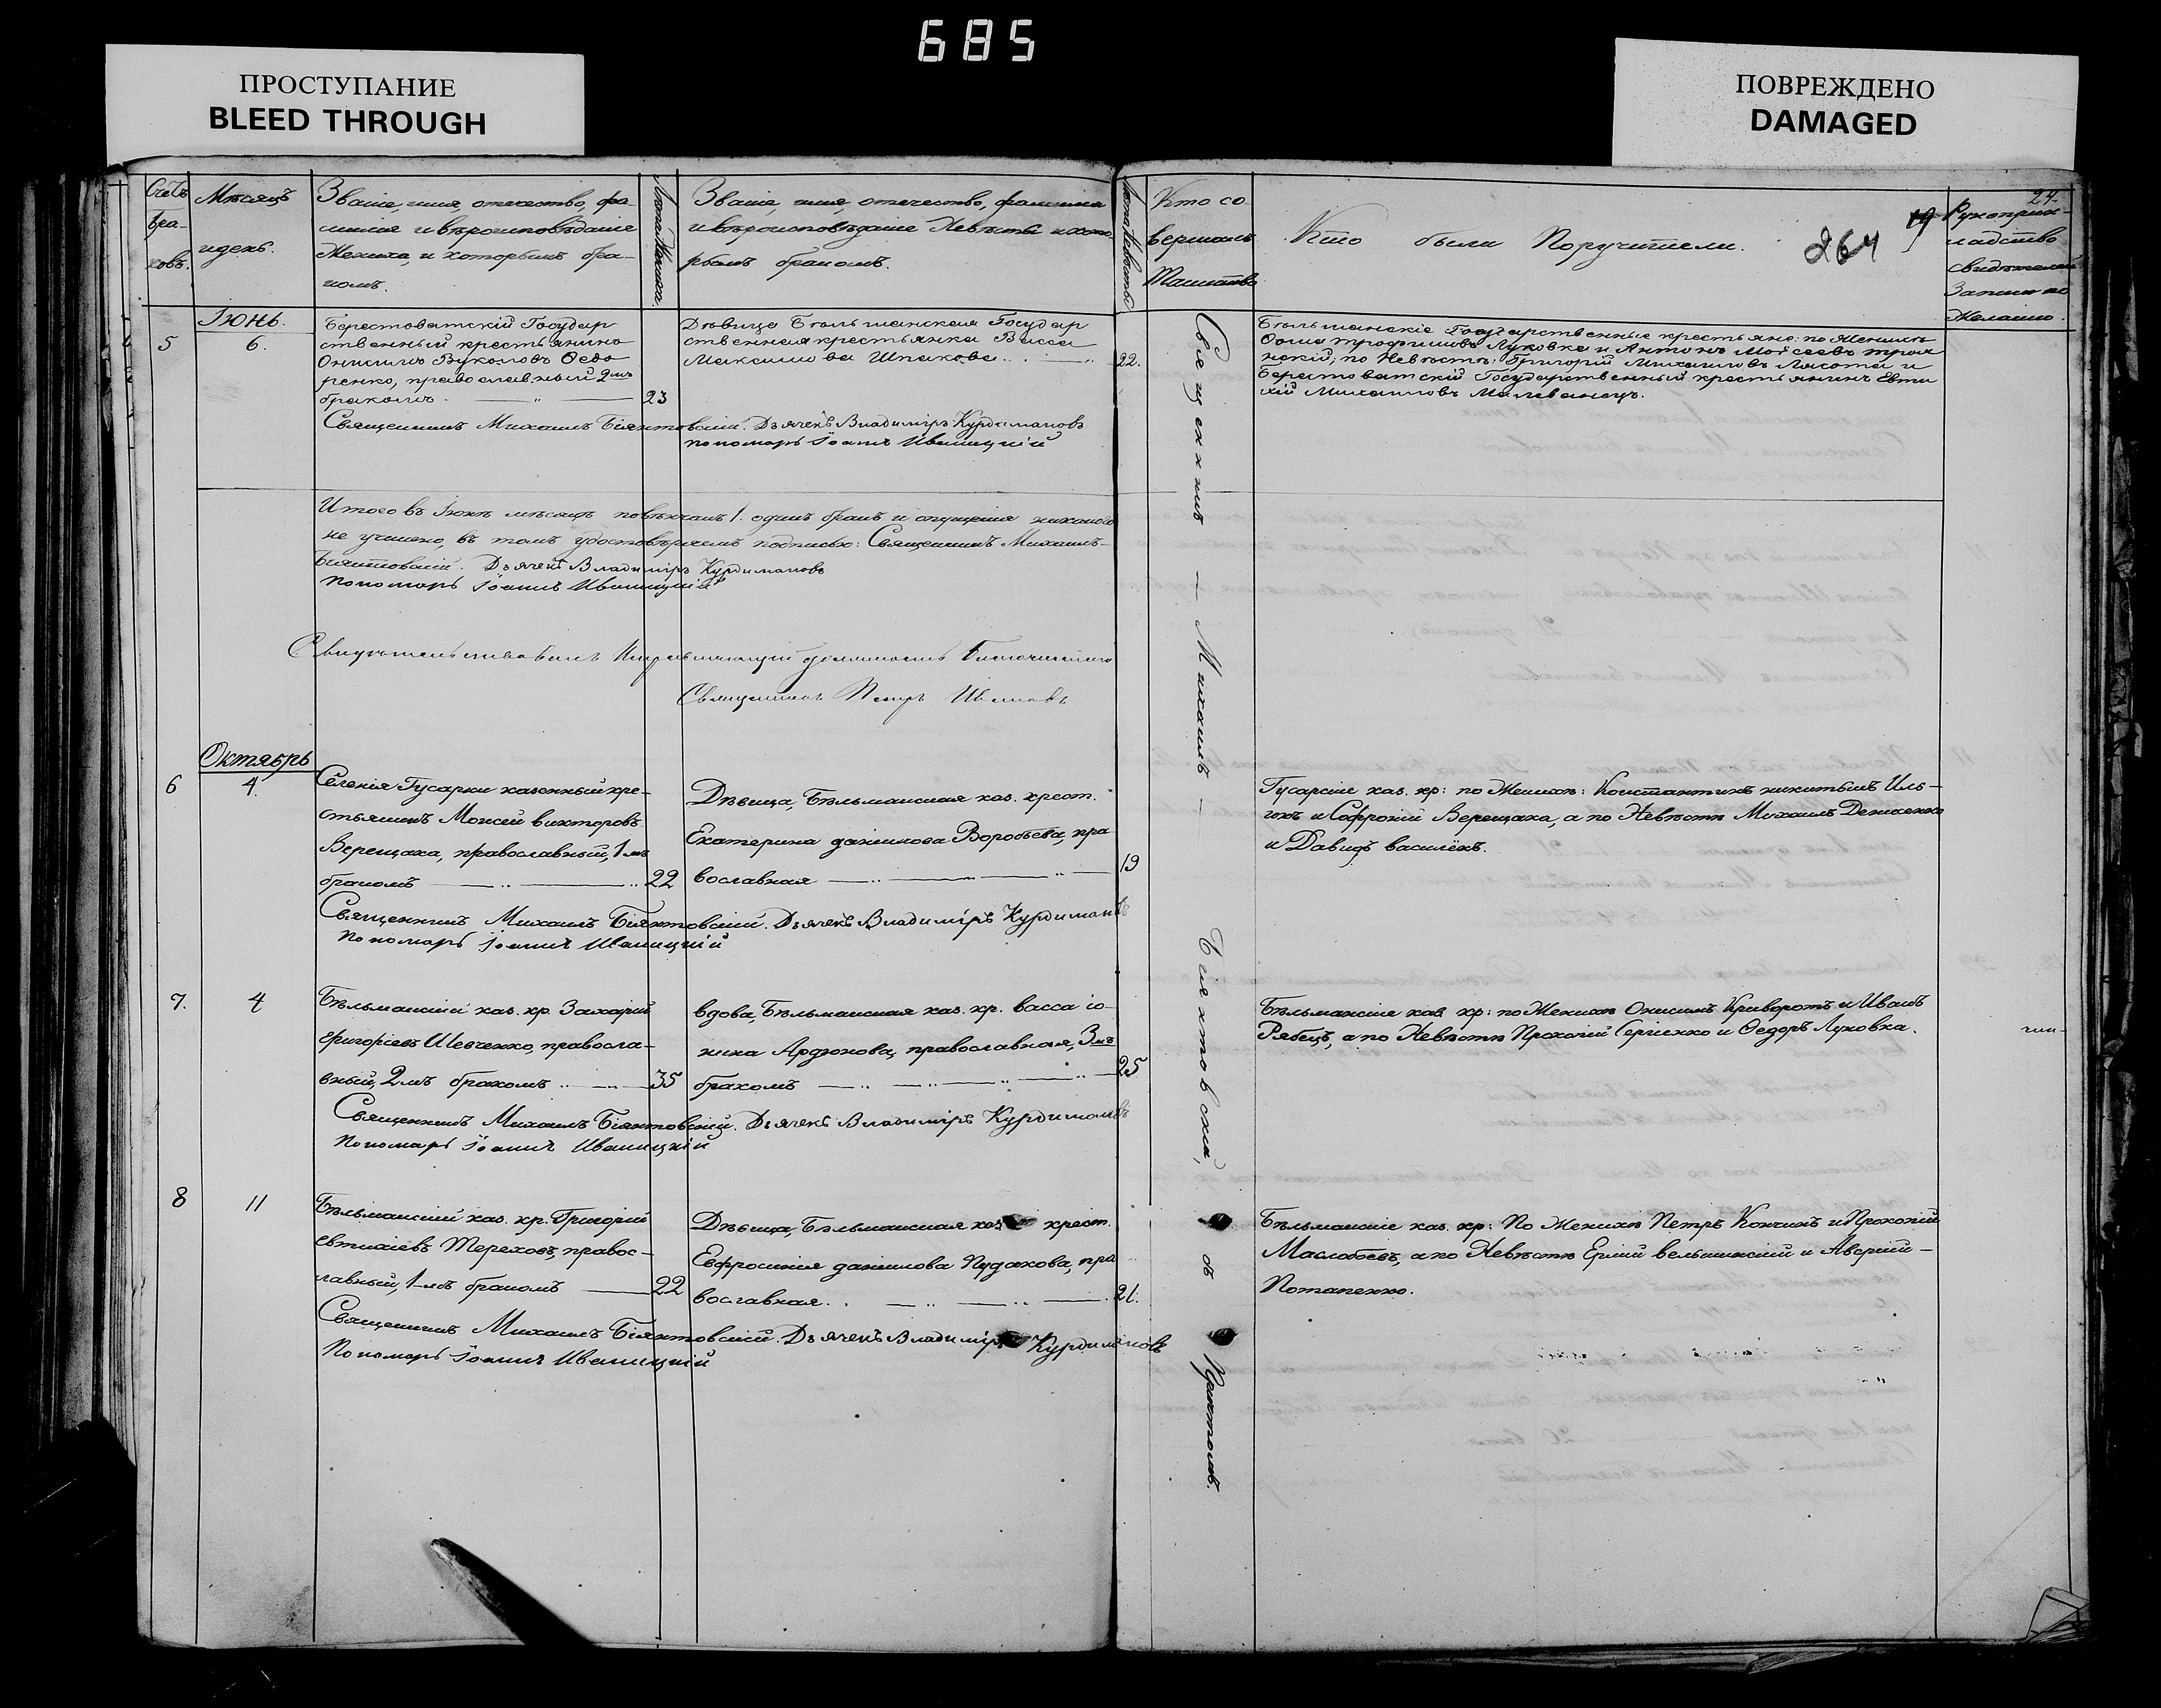 685
ПРОСТУПАНИЕ
BLEED THROUGH
ПОВРЕЖДЕНО
DAMAGED
Счетъ
бра-
ковъ.
Мѣсяцъ
и день.
Званіе, имя, отечество, фа-
милія и вѣроисповѣданіе
Жениха, и которымъ бра-
комъ.
Лѣта Жениха.
Званіе, имя, отечество, фамилія
и вѣроисповѣданіе Невѣсты и кото-
рымъ бракомъ.
Лѣта Невѣсты
Кто со
вершалъ
Таинство
Кто были Поручители.
264
19
24.
Рукоприк-
ладство
свидѣтелей
Записи по
Желанію.
Іюнь.
5
6.
Берестоватскій Государ
ственный крестьянинъ
Онисимъ Вуколовъ Ѳедо
ренко, православный 2мъ
бракомъ.
23
Дѣвица Бѣльманская Государ
ственная крестьянка Васса
Максимова Шпакова
22.
Бѣльманскіе Государственные крестьяне: по Женихѣ
Ѳома Трофимовъ Луковка и Антонъ Мойсеевъ Троя
нскій; по Невѣстѣ: Григорій Михаиловъ Лясота и
Берестоватскій Государственный крестьянинъ Евти
хій Михаиловъ Малеванецъ.
Священникъ Михаилъ Біянтовскій. Дьячекъ Владиміръ Курдимановъ
пономарь Іоаннъ Иваницкій
Итого въ Іюнѣ мѣсяцѣ повѣнчанъ 1. одинъ бракъ и опущенія никакого
не учинено, въ томъ удостовѣряемъ подписью: Священникъ Михаилъ
Біянтовскій. Дьячекъ Владиміръ Курдимановъ
Пономарь Іоаннъ Иваницкій
Свидѣтельствовалъ Исправляющій должность Благочиннаго
Священникъ Петръ
Священникъ — Михаилъ — Біянтовскій, съ Причтомъ.
Октябрь
6
4.
Селенія Гусарки казенный кре-
стьянинъ Моисей Викторовъ
Верещака, православный, 1мъ
бракомъ
22
Дѣвица, Бѣльманская каз. крест.
Екатерина Данилова Воробьева, пра
вославная
19
Гусарскіе каз. кр: по Женихѣ: Константинъ Никитинъ Иль-
инъ и Софроній Верещака, а по Невѣстѣ Михаилъ Денисенко
и Давидъ Василёкъ.
Священникъ Михаилъ Біянтовскій. Дьячекъ Владиміръ Курдимановъ
Пономарь Іоаннъ Иваницкій
7.
4
Бѣльманскій каз. кр. Захарій
Григоріевъ Шевченко, правосла-
вный, 2мъ бракомъ
35
вдова, Бѣльманская каз. кр. Васса Іо-
нина Ардюкова, православная, 3мъ
бракомъ
25
Бѣльманскіе каз. кр: по Женихѣ Онисимъ Криворотъ и Иванъ
Рябецъ, а по Невѣстѣ Прокопій Сергіенко и Ѳедоръ Луковка.
Священникъ Михаилъ Біянтовскій. Дьячекъ Владиміръ Курдимановъ
Пономарь Іоаннъ Иваницкій
8
11
Бѣльманскій каз. кр. Григорій
Евтихіевъ Тереховъ, правос-
лавный, 1мъ бракомъ
22
Дѣвица, Бѣльманская каз. крест.
Евфросинія Данилова Пудакова, пра
вославная.
21.
Бѣльманскіе каз. кр: По Женихѣ Петръ Кончинъ и Прокопій
Маслобоевъ, а по Невѣстѣ Ермій Вельшинскій и Аверкій
Потапенко.
Священникъ Михаилъ Біянтовскій. Дьячекъ Владиміръ Курдимановъ
Пономарь Іоаннъ Иваницкій